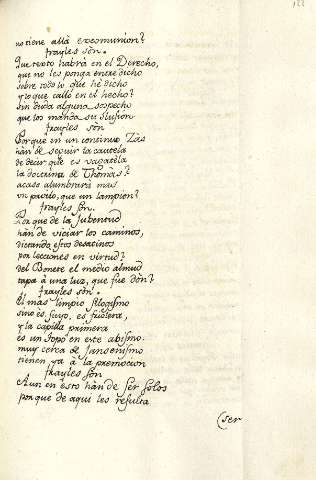 no tiene allà excomunion?
frayles són.
Que texto habrá en el Derecho,
que no les ponga entredicho
sobre todo lo que hè dicho
y lo que callo en el hecho?
sin duda alguna sospecho
que los manda su ilusion
frayles són
Porque en un continuo Zàs
hàn de seguir la cautela
de decir que es bagatela
la doctrina de Thomàs?
acaso alumbrarà mas
un pavilo, que un lampion?
frayles son.
Porque de la Jubentud
hàn de viciar los caminos,
dictando estos desatinos
por lecciones en virtud?
del Bonete el medio almud
tapa à una luz, que fue dòn?
frayles són.
El mas limpio silogismo
sino és suyo, es friolera,
y la capilla primera
es un topo en este abismo.
muy cerca de Jansenismo
tienen ya à la premocion
frayles són
Aun en esto hàn de ser solos
porque de aqui les resulta
(ser